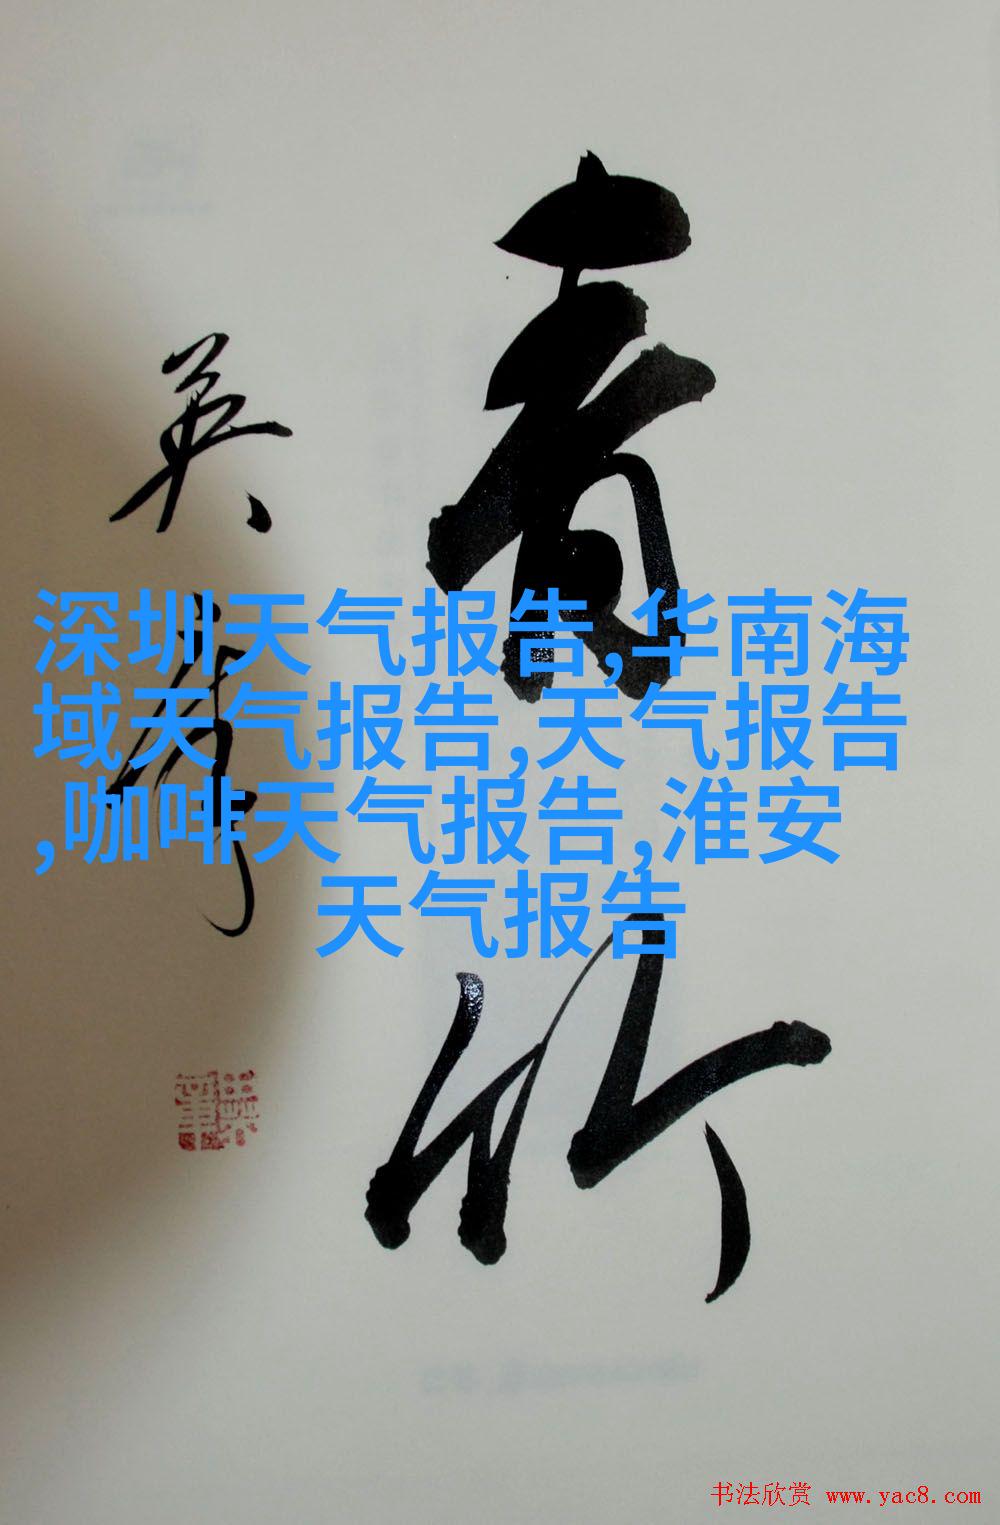 青竹
英
深圳天气报告,华南海
域天气报告,天气报告
,咖啡天气报告,淮安
天气报告
书法欣赏 www.yac8.com